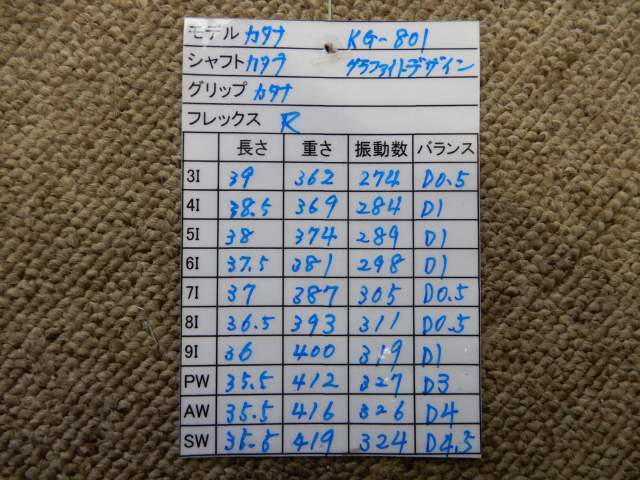 モデル カタナ KG-801
シャフト カタナ グラファイトデザイン
グリップ カタナ
フレックス R
長さ 重さ 振動数 バランス
3I 39 362 274 D0.5
4I 38.5 369 284 D1
5I 38 374 289 D1
6I 37.5 381 298 D1
7I 37 387 305 D0.5
8I 36.5 393 311 D0.5
9I 36 400 319 D1
PW 35.5 412 327 D3
AW 35.5 416 326 D4
SW 35.5 419 324 D4.5